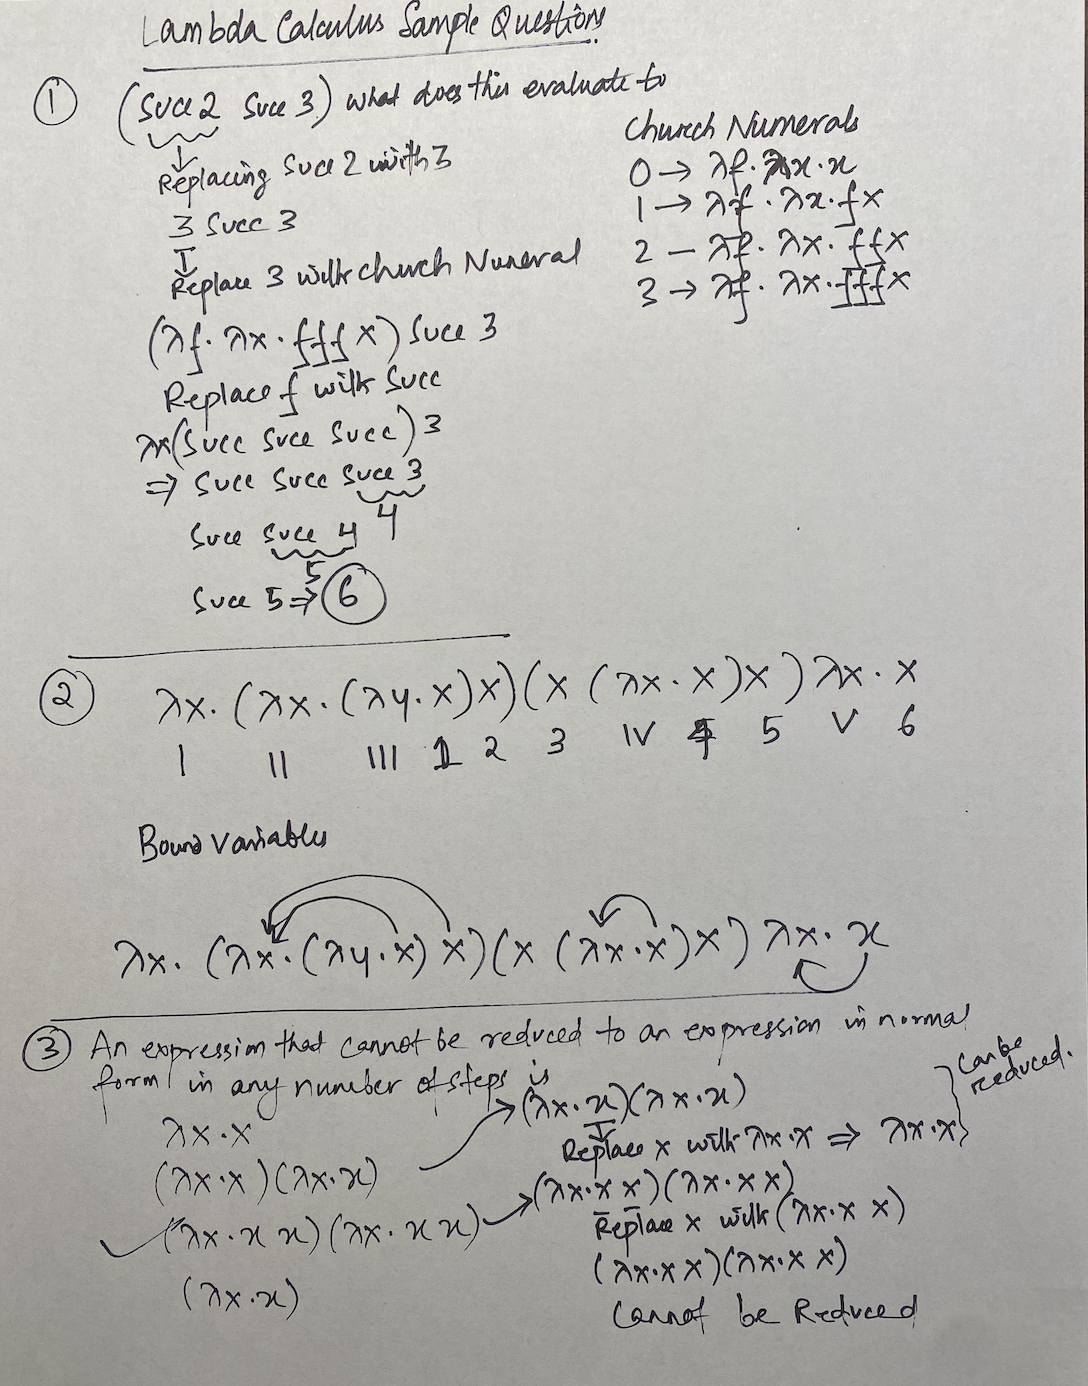 Lambda Calculus Sample Questions
① (Succ 2 Succ 3) what does this evaluate to
Replacing Succ 2 with 3
3 Succ 3
Replace 3 with church Numeral
(λf. λx. fff x) Succ 3
Replace f with Succ
λx(Succ Succ Succ) 3
⇒ Succ Succ Succ 3
4
Succ Succ 4
5
Succ 5 ⇒ 6
Church Numerals
0 → λf. λx. x
1 → λf. λx. f x
2 – λf. λx. ffx
3 → λf. λx. fffx
② λx. (λx. (λy. x) x) (x (λx. x) x) λx. x
I II III 1 2 3 IV 4 5 V 6
Bound Variables
λx. (λx. (λy. x) x) (x (λx. x) x) λx. x
③ An expression that cannot be reduced to an expression in normal
form in any number of steps is
λx.x
(λx.x)(λx.x)
✓ (λx.x x)(λx.x x)
(λx.x)
→ (λx.x)(λx.x)
Replace x with λx.x ⇒ λx.x
} Can be
reduced.
→ (λx.x x)(λx.x x)
Replace x with (λx.x x)
(λx.x x)(λx.x x)
Cannot be Reduced